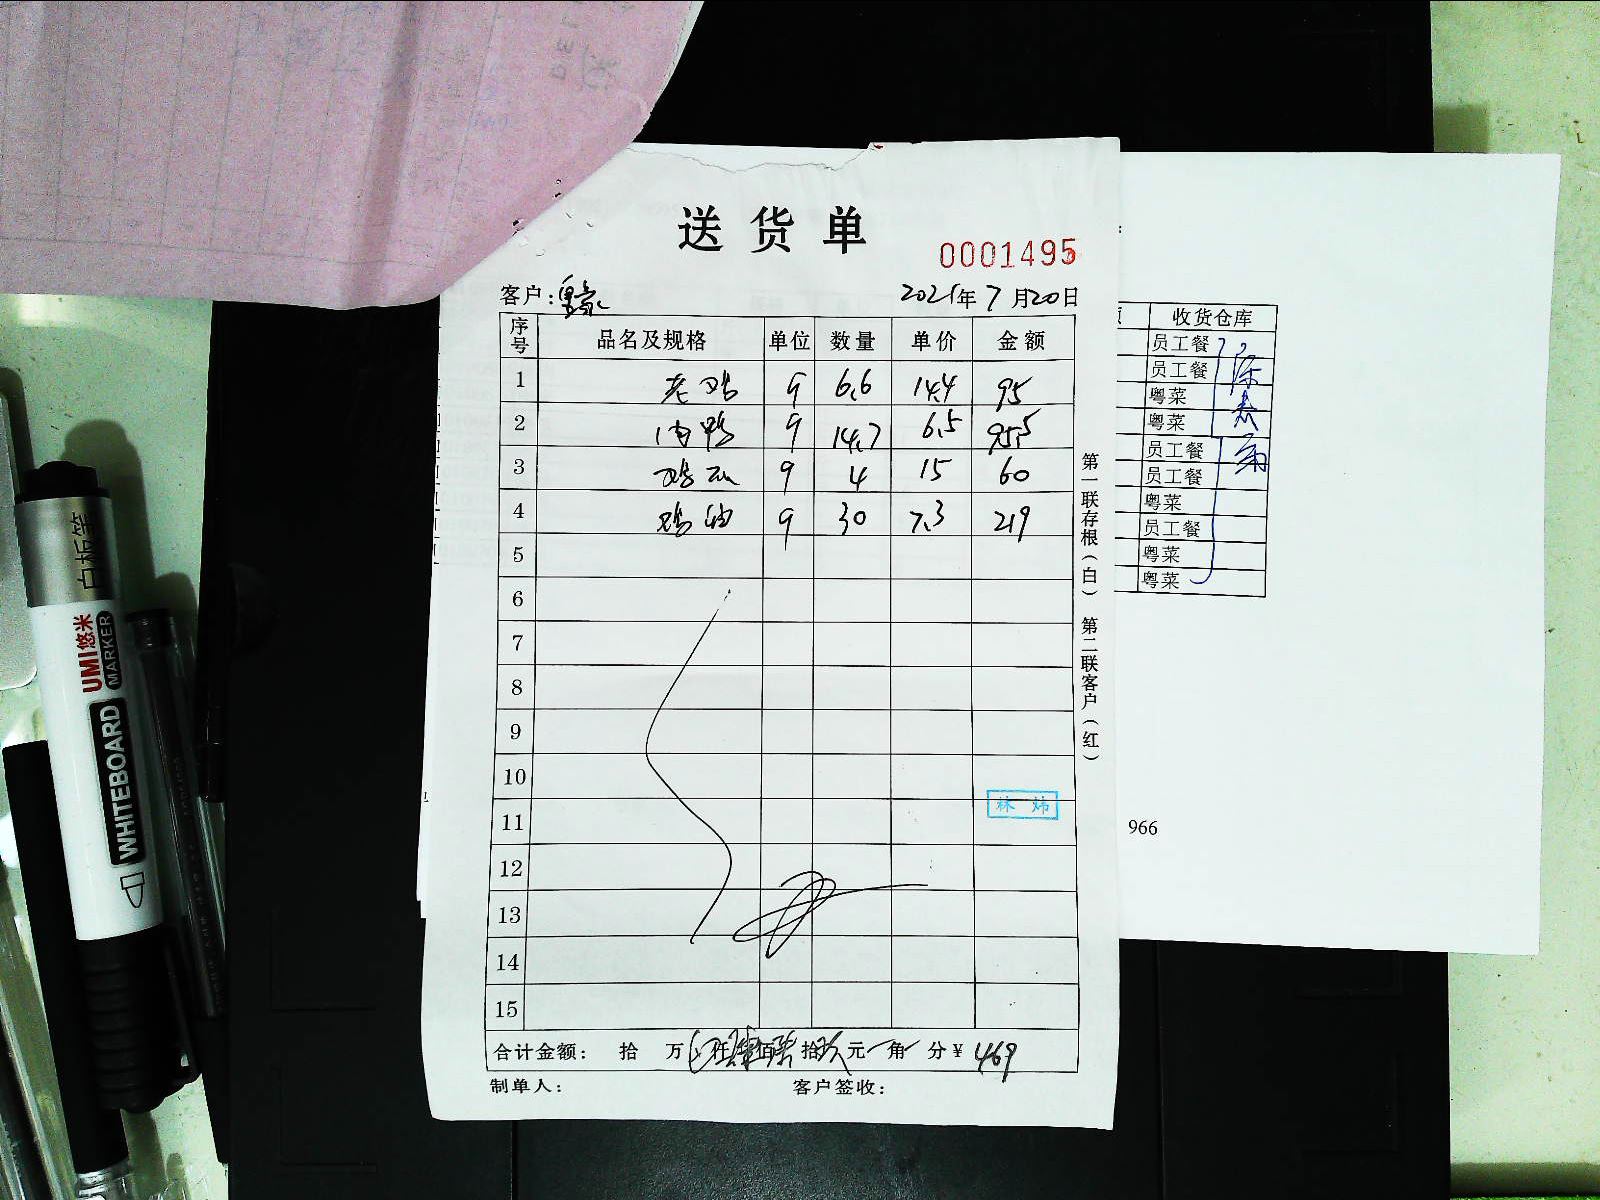 送货单
0001495
客户:
2021年7月20日
序号 品名及规格 单位 数量 单价 金额
1 老鸡 9 6.6 14.4 95
2 肉鸭 9 14.7 6.5 95.5
3 9 4 15 60
4 鸡油 9 30 7.3 219
5
6
7
8
9
10
11
12
13
14
15
林炜
合计金额: 拾 万 仟肆佰陆拾玖元 角 分¥ 469
制单人: 客户签收:
第一联存根(白) 第二联客户(红)
收货仓库
员工餐
员工餐
粤菜
粤菜
员工餐
员工餐
粤菜
员工餐
粤菜
粤菜
966
白板笔
UMI悠米
MARKER
WHITEBOARD